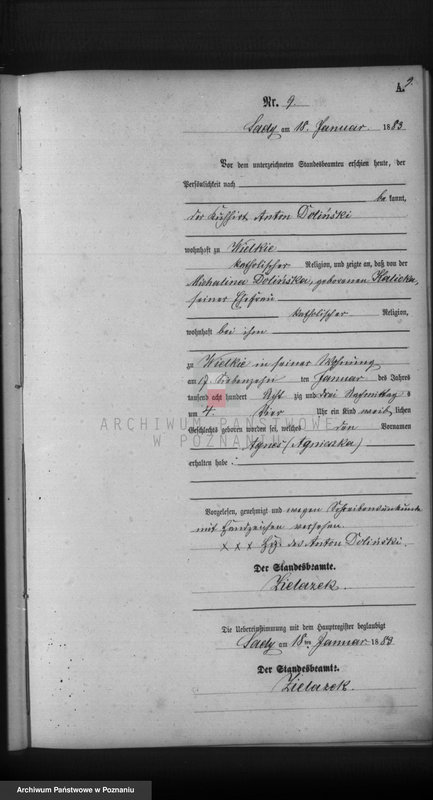 A. 9.
Nr. 9.
Sady am 18. Januar 1883
Vor dem unterzeichneten Standesbeamten erschien heute, der
Persönlichkeit nach
bekannt,
der Kuhhirt Anton Doliński
wohnhaft zu Wielkie
katholischer Religion, und zeigte an, daß von der
Michalina Dolińska, geborenen Kalicka,
seiner Ehefrau
katholischer Religion,
wohnhaft bei ihm
zu Wielkie in seiner Wohnung
am 17. Siebenzehn ten Januar des Jahres
tausend acht hundert Acht zig und drei Nachmittag s
um 4. Vier Uhr ein Kind weib lichen
ARCHIWUM PAŃSTWOWE
W POZNANIU
Geschlechts geboren worden sei, welches den Vornamen
Agnes (Agnieszka)
erhalten habe.
Vorgelesen, genehmigt und wegen Schreibensunkunde
mit Handzeichen versehen.
x x x Hz. des Anton Doliński.
Der Standesbeamte.
Zielazek.
Die Uebereinstimmung mit dem Hauptregister beglaubigt
Sady am 18ten Januar 1883
Der Standesbeamte.
Zielazek.
Archiwum Państwowe w Poznaniu